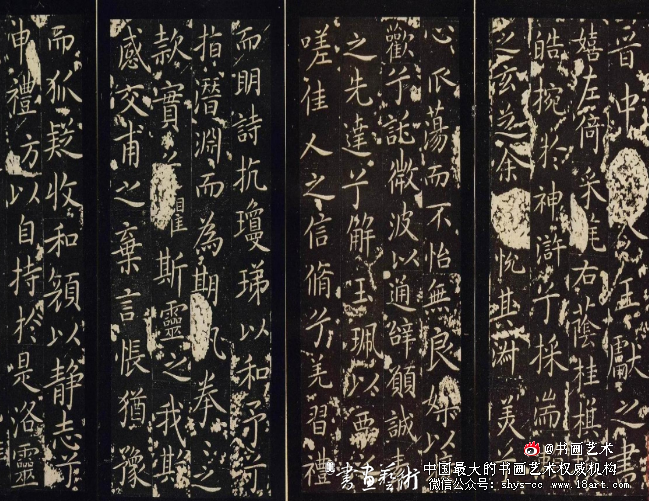 晉中令王獻之書
嬉左倚采旄右蔭桂旗
皓捥於神滸兮採湍
之玄芝余悅其淑美
心振蕩而不怡無良媒以
歡兮託微波以通辭願誠素
之先達兮解玉珮以要
嗟佳人之信脩兮羌習禮
而明詩抗瓊珶以和予兮
指潛淵而為期執拳之
款實兮懼斯靈之我欺
感交甫之棄言悵猶豫
而狐疑收和顏以静志兮
申禮防以自持於是洛靈
@书画艺术
書畫藝術
中国最大的书画艺术权威机构
微信公众号: shys-cc www.18art.com